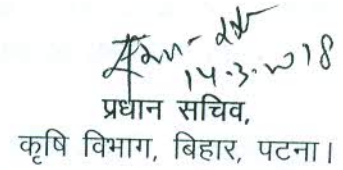 14.3.2018
प्रधान सचिव,
कृषि विभाग, बिहार, पटना।